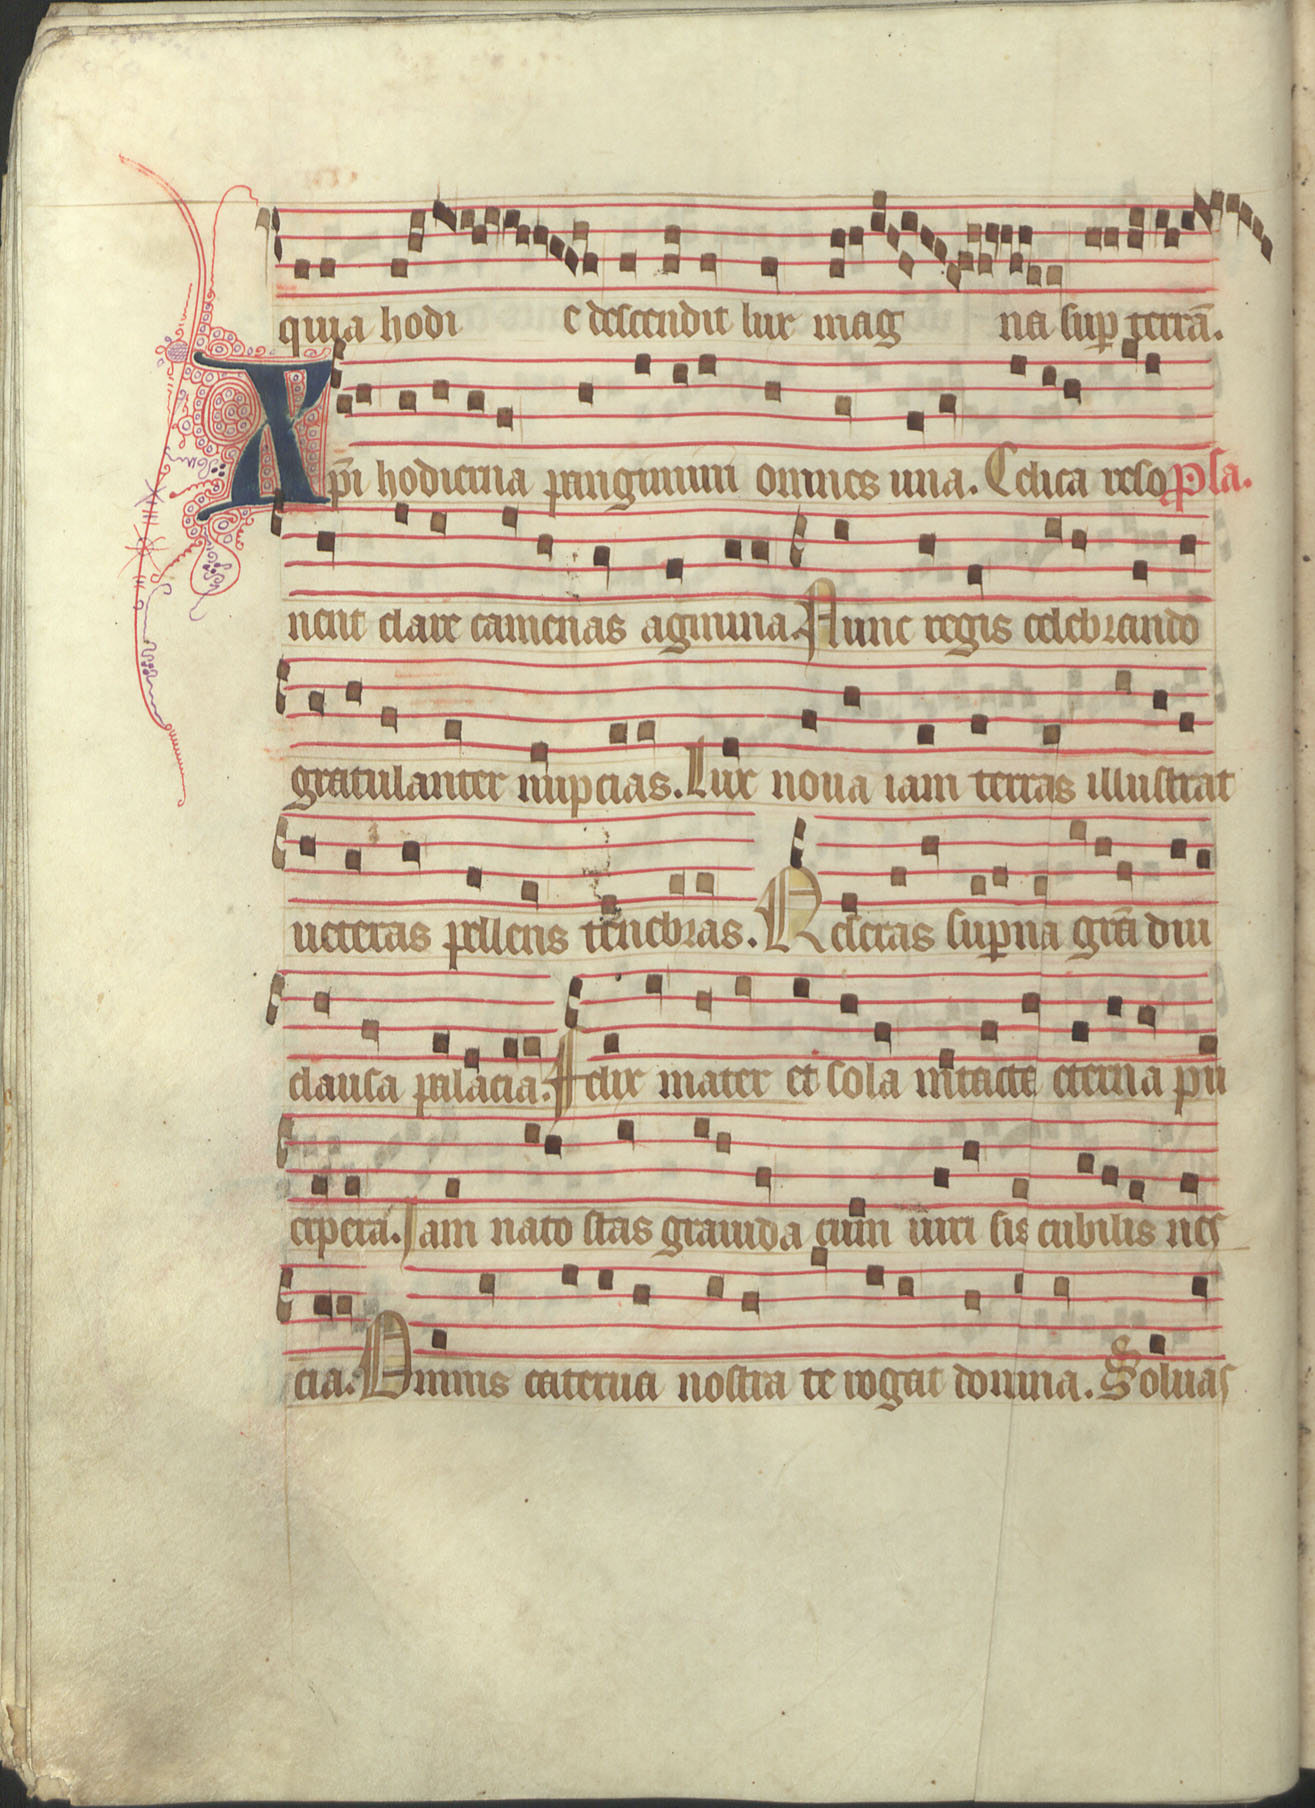 quia hodi e descendit lux mag na sup̱ terrā.
Xp̄i hodierna pangimini omnes una. Celica reso p̱sa.
nent clare camenas agmina. Nunc regis celebrando
gratulanter nupcias. Lux noua iam terras illustrat
ueteras pellens tenebras. Reseras sup̱na grā diu
clausa palacia. Felix mater et sola intacta eterna pu
erpera. Iam nato stas grauida cum uiri sis cubilis nes
cia. Omnis caterua nostra te rogat domina. Soluas